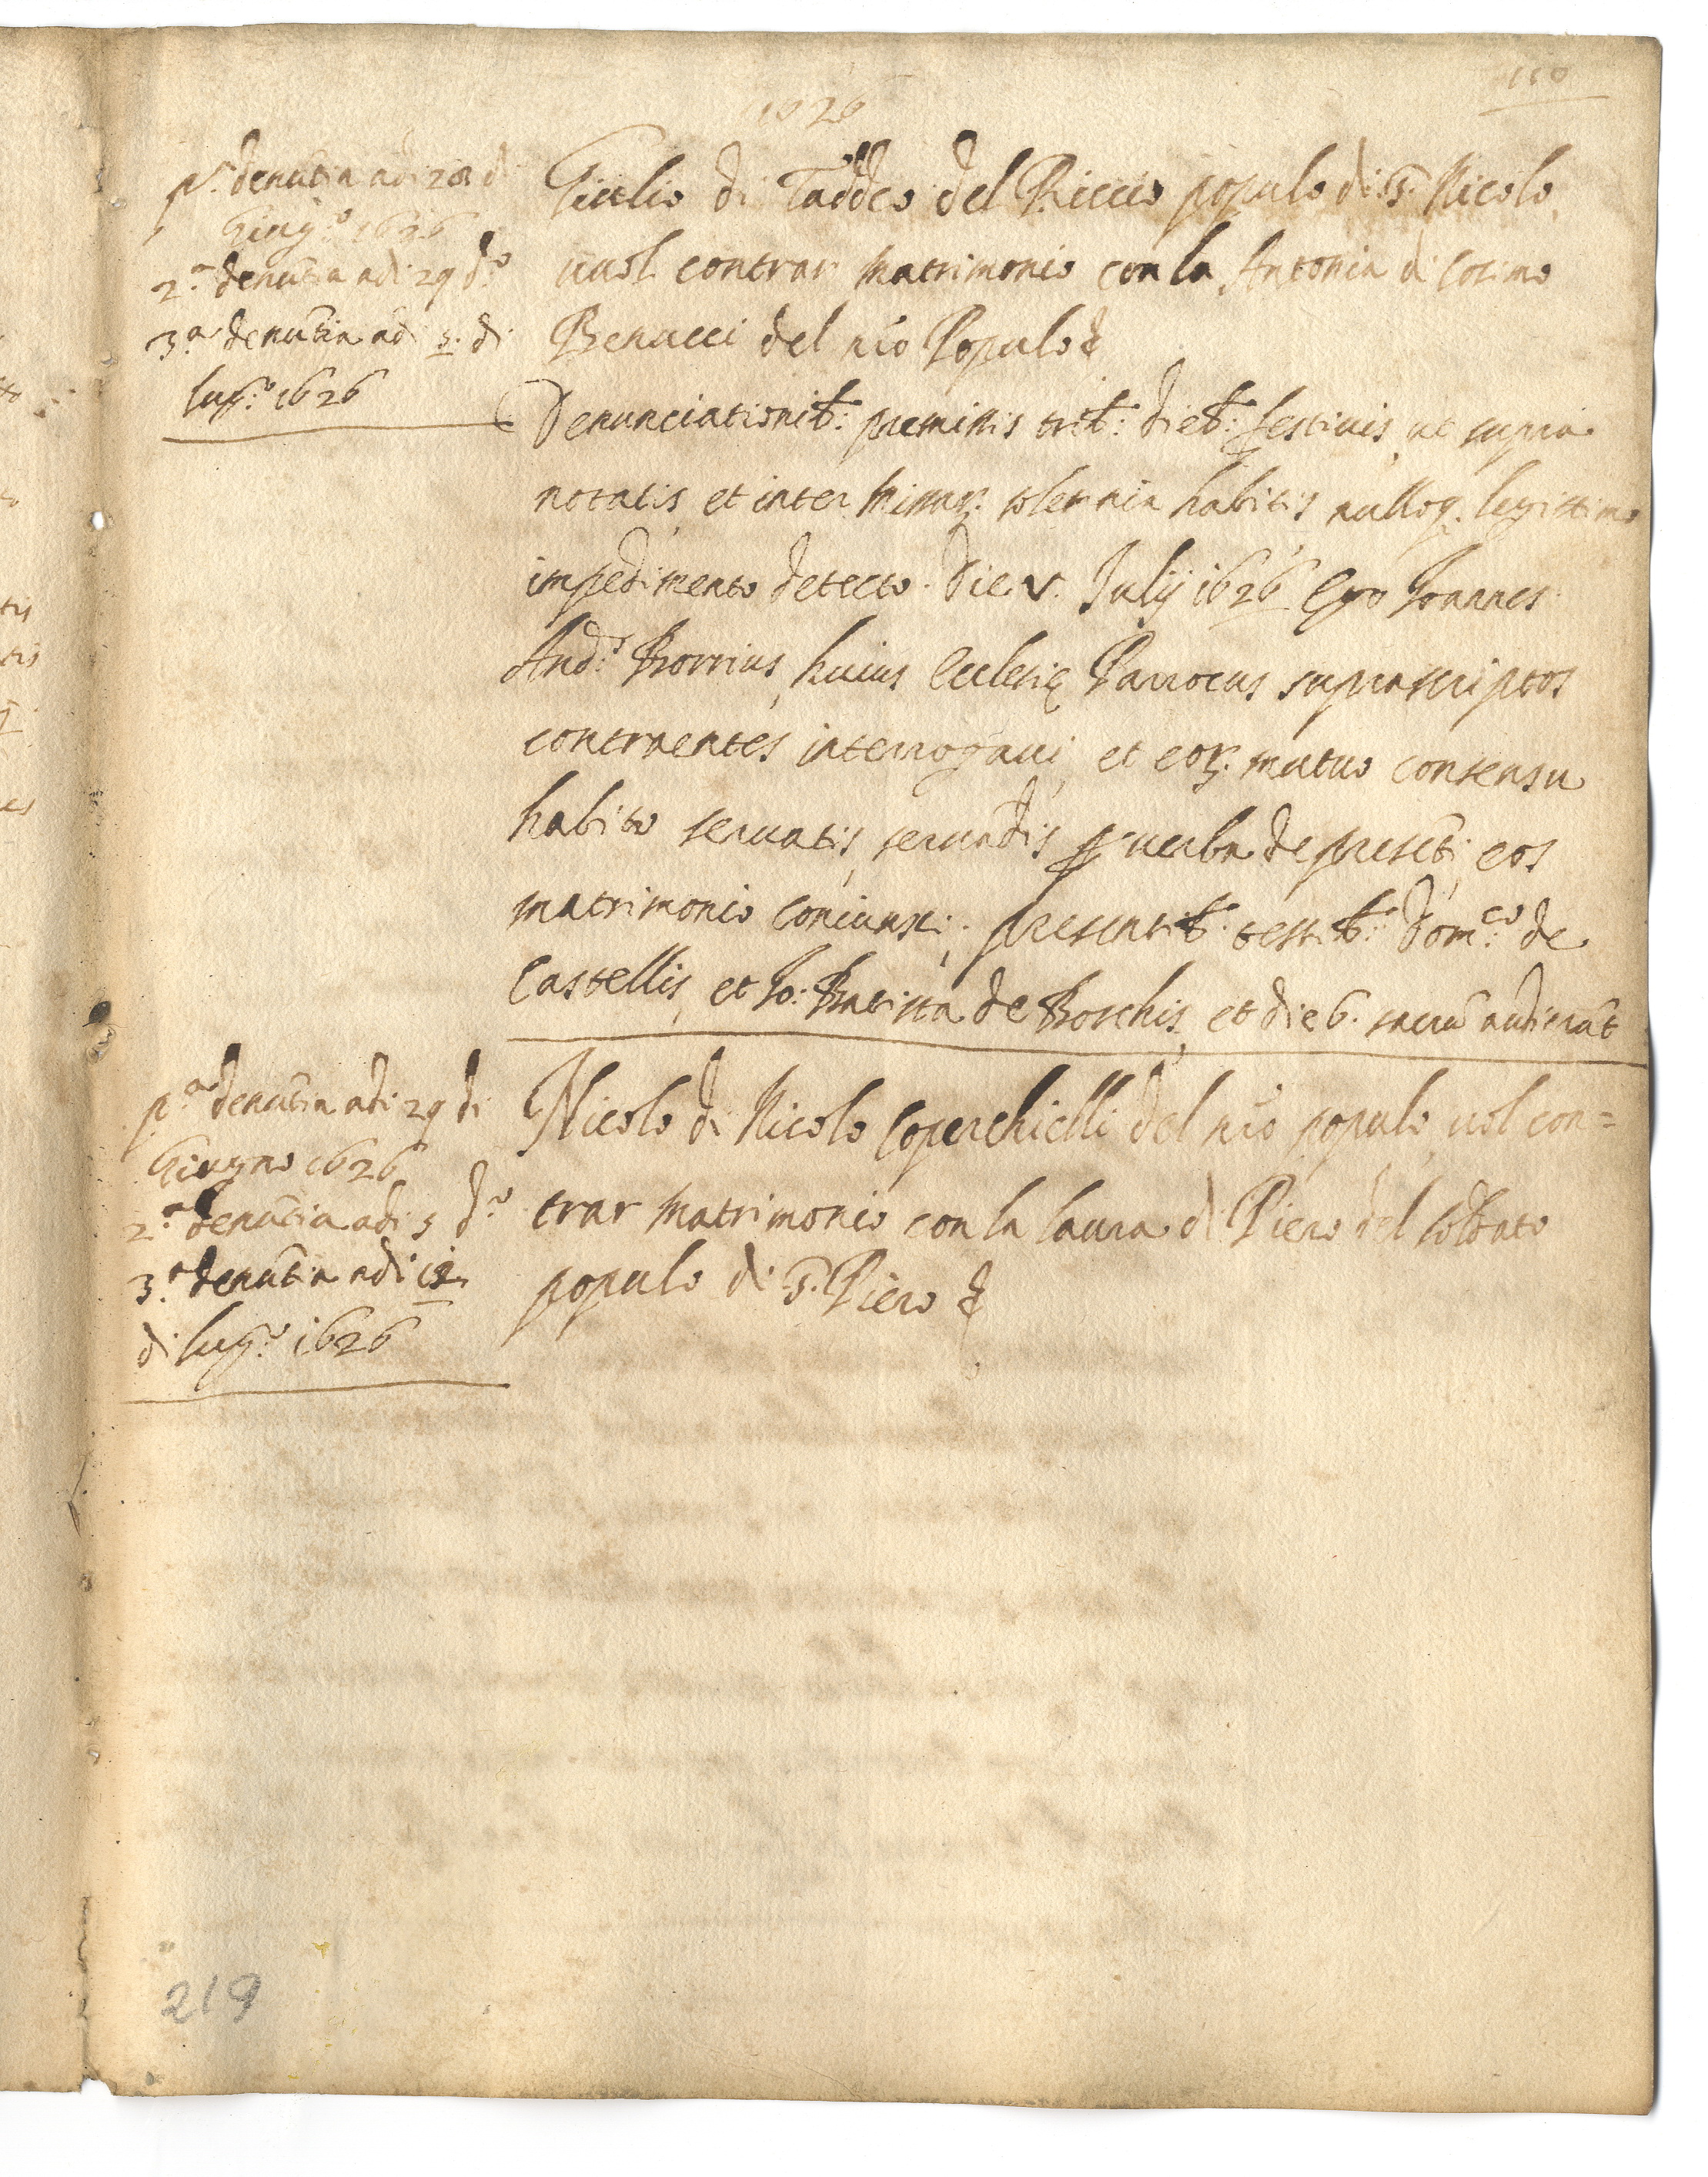 110
1626
p.ª denũtia adi 28 di
Giug.º 1626
2.ª denũtia adi 29 d.º
3.ª denũtia adi 5. di
lug.º 1626
Giulio di Taddeo del Riccio populo di S. Nicolo
vuol contrar matrimonio con la Antonia di Cosimo
Benucci del nrõ Populo &
Denunciationib: premissis trib: dieb: festivis, ut supra
notatis, et inter missaꝝ solennia habitis, nulloq. legittimo
impedimento detecto. Die V. Julij 1626 Ego Joannes
And.s Borrius, huius Ecclesię Parrocus suprascriptos
contraentes interrogavi, et eoꝝ. mutuo consensu
habito servatis, servãdis ꝑ verba de presẽti, eos
matrimonio coniunxi; presentib: testib: Dom:co de
Castellis, et Jo: Batista de Boschis, et die 6. sacrũ audierũt
p.ª denũtia adi 29 di
Giugno 1626
2.ª denũtia adi 5 d.º
3.ª denũtia adi 12
di lug.º 1626
Nicolo di Nicolo Coperchielli del nrõ populo, vol con=
trar matrimonio con la Laura di Piero del soldato
populo di S. Piero &
219
tis
tis
es